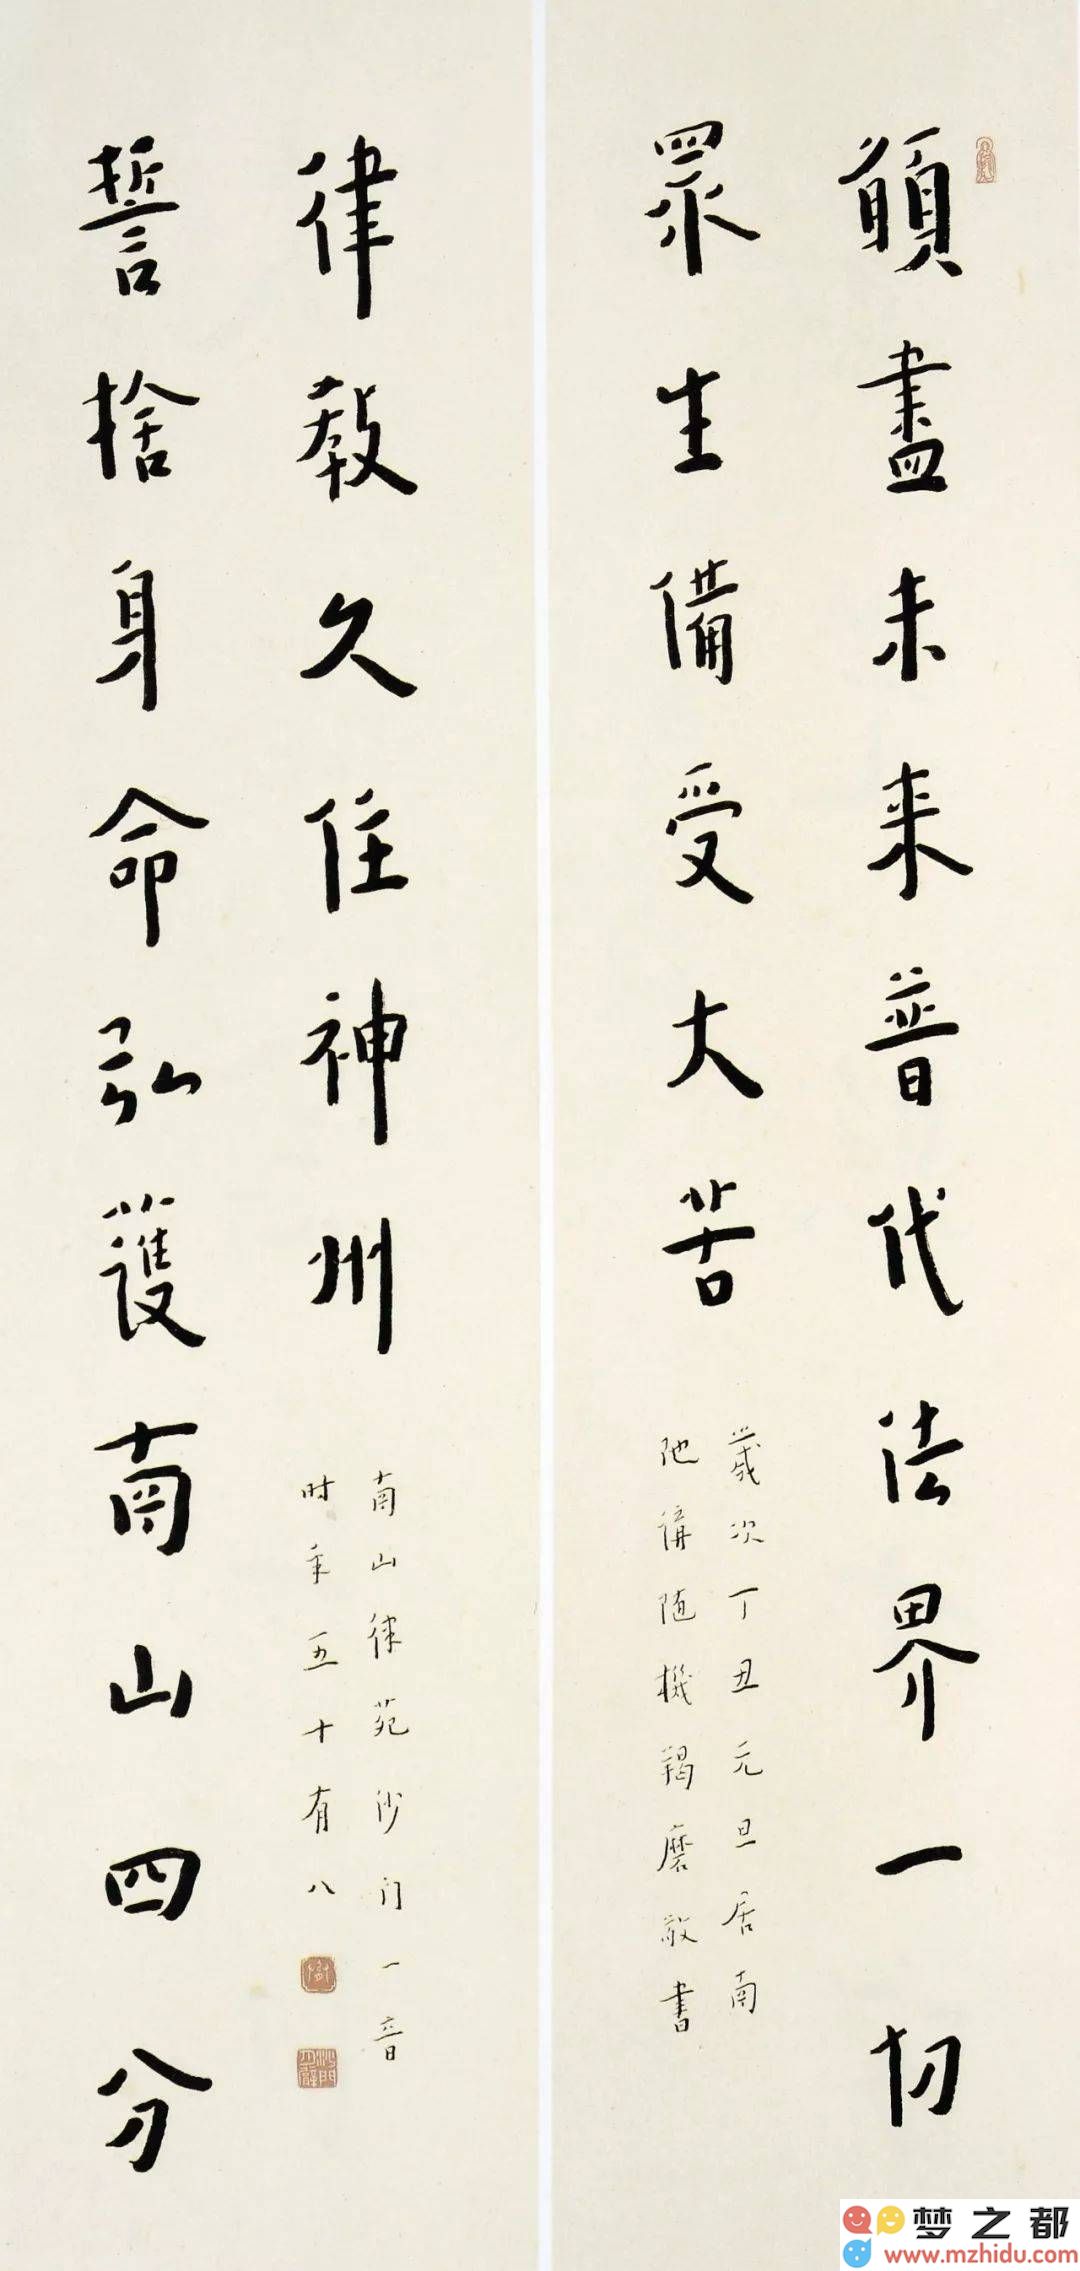 願盡未来普代法界一切
眾生備受大苦
歲次丁丑元旦居南
陀講随機羯磨敬書
誓捨身命弘護南山四分
律教久住神州
南山律苑沙门一音
时年五十有八
沙門
梦之都
www.mzhidu.com